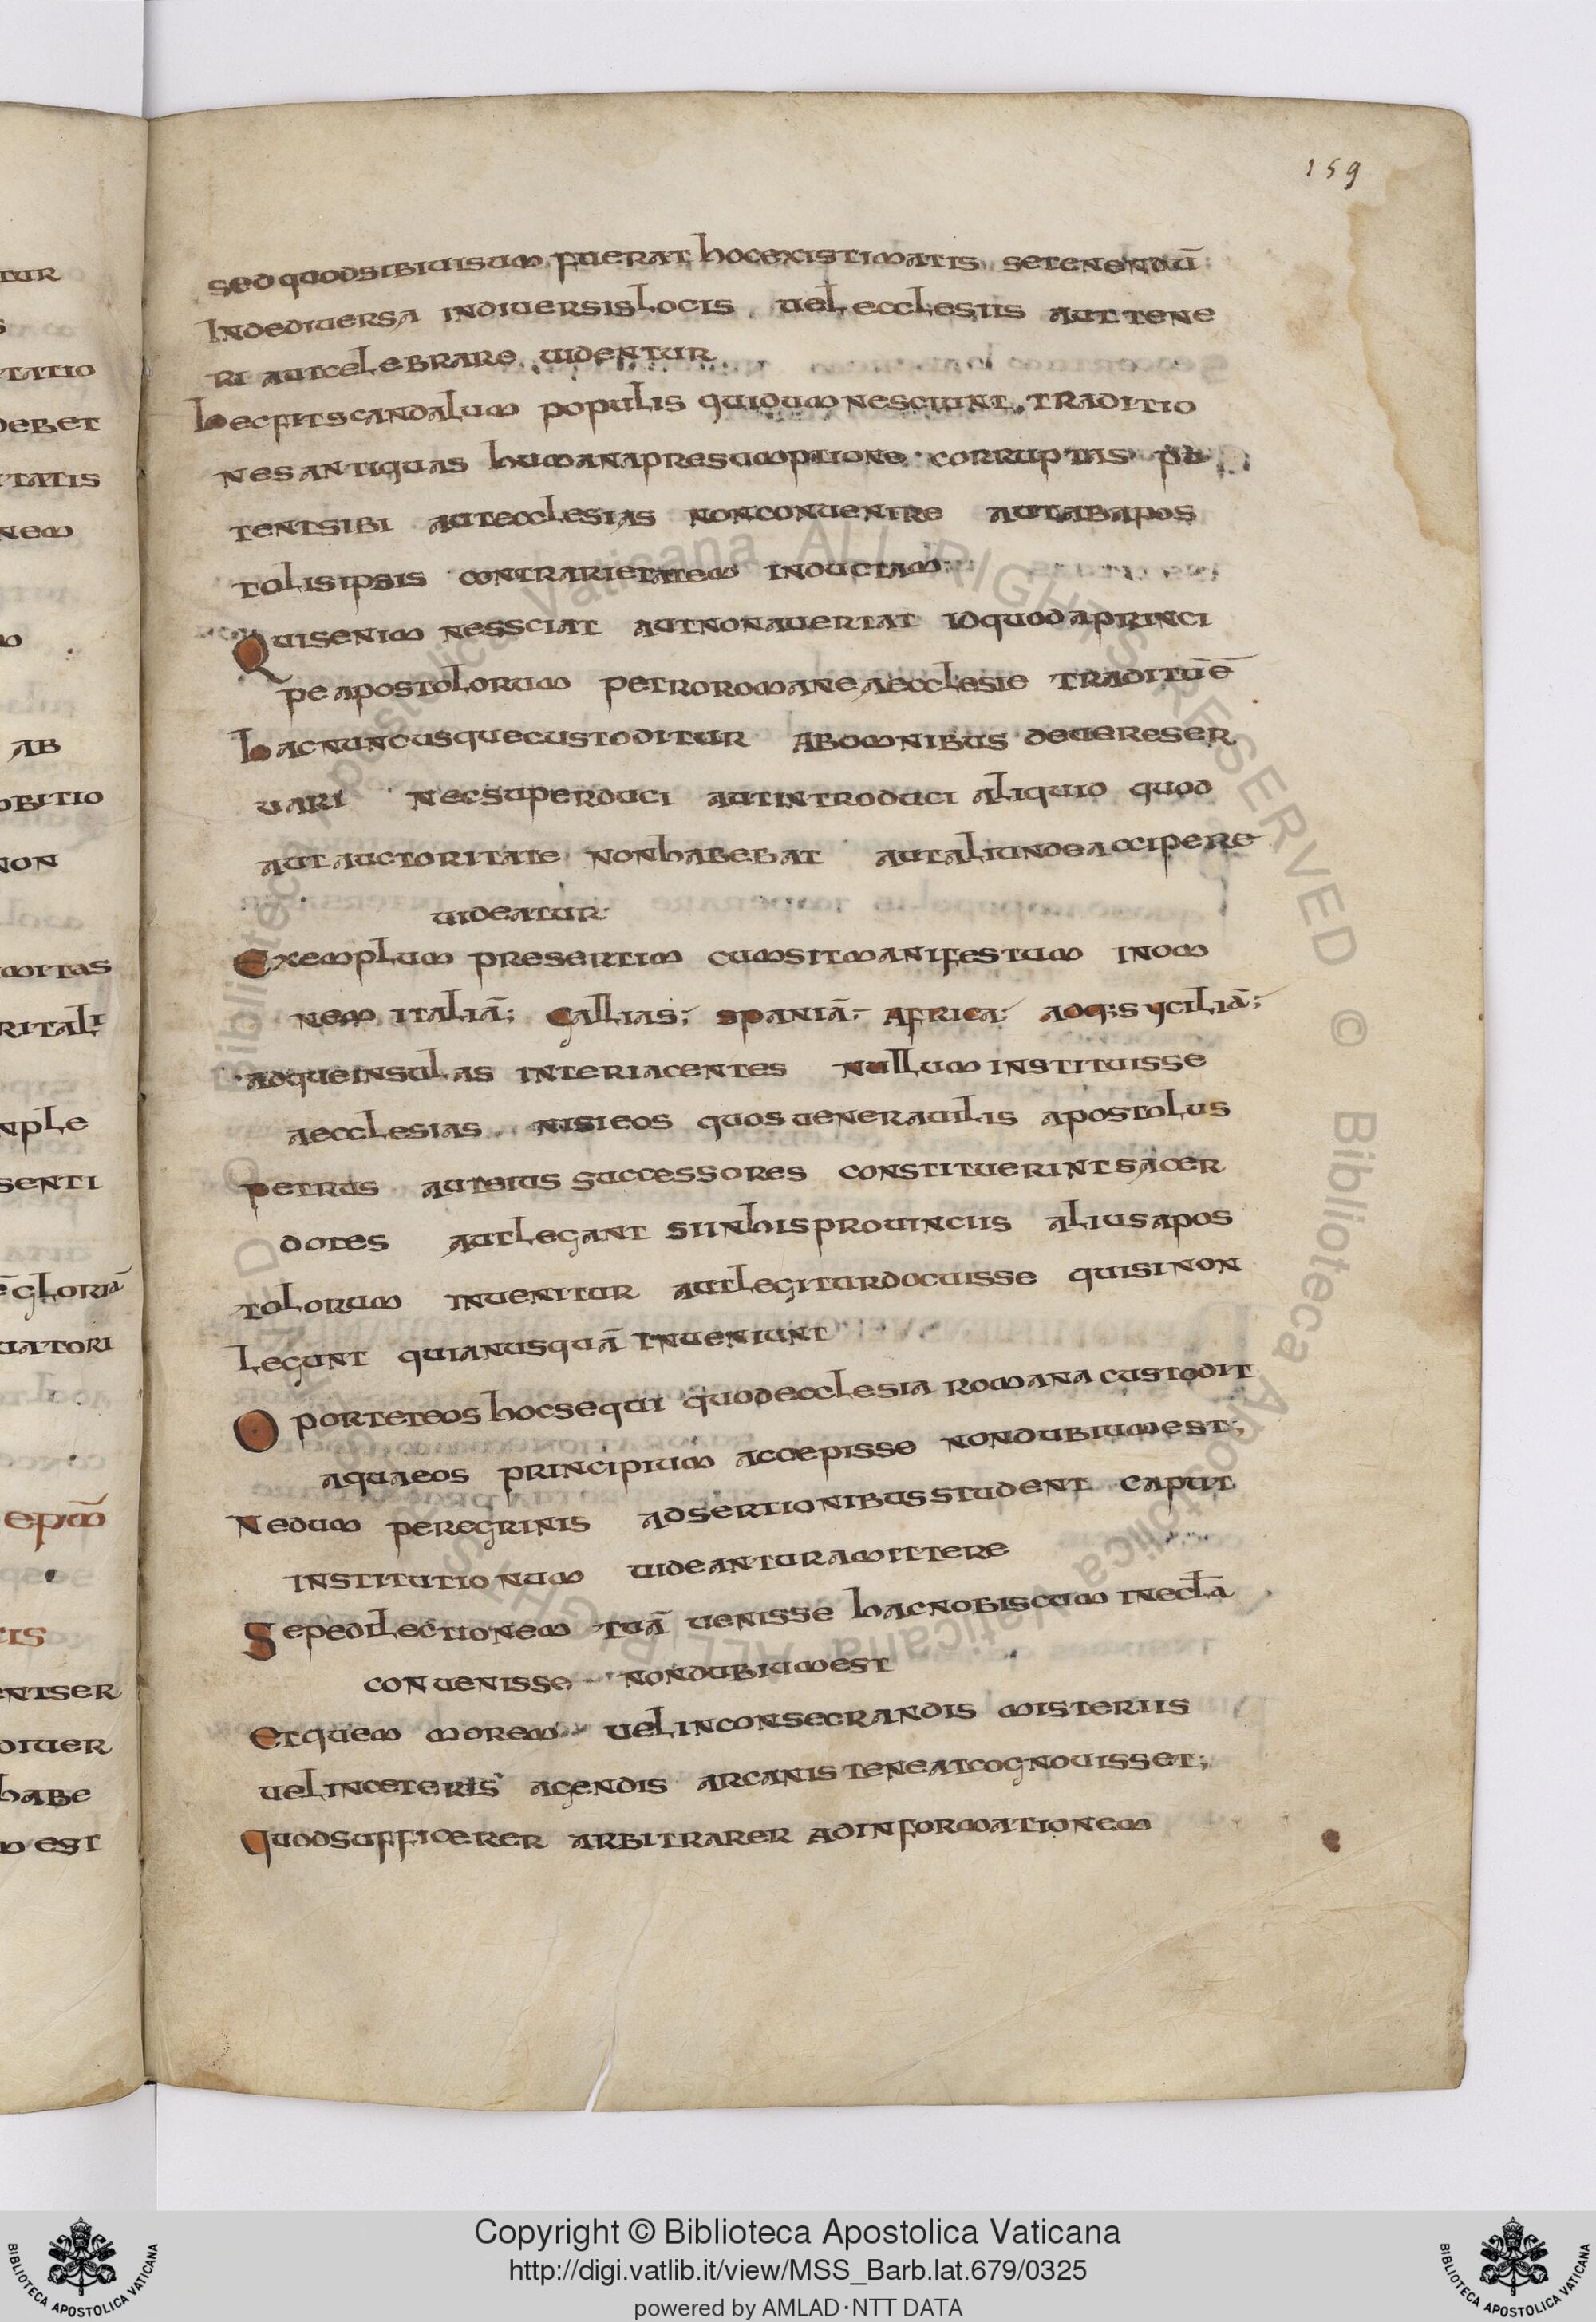 159
sed quod sibi uisum fuerat hoc existimatis se tenendū
Inde diuersa in diuersis locis uel ecclesiis aut tene
ri aut celebrare uidentur
hec fit scandalum populis qui dum nesciunt traditio
nes antiquas humana presumptione corruptas
tent sibi aut ecclesias non conuenire aut ab apos
tolis ipsis contrarietatem inductam
Quis enim nessciat aut non auertat id quod a princi
pe apostolorum petro romane aecclesie traditū ē
hac nunc usque custoditur ab omnibus deuere ser
uari nec superduci aut introduci aliquid quod
aut auctoritate non habebat aut aliunde accipere
uideatur
Exemplum presertim cum sit manifestum in om
nem italiā; Gallias; spaniā; Africa; adq; syciliā;
adque insulas interiacentes nullum instituisse
aecclesias nisi eos quos uenerauilis apostolus
petrus aut eius successores constituerint sacer
dotes aut legant si in his prouinciis alius apos
tolorum inuenitur aut legitur docuisse qui si non
legunt quia nusquā inueniunt
Oportet eos hoc sequi quod ecclesia romana custodit
a qua eos principium accepisse non dubium est;
Ne dum peregrinis adsertionibus student caput
institutionum uideantur amittere
Sepe dilectionem tuā uenisse hac nobiscum in ecl̄a
conuenisse non dubium est
Et quem morem uel in consecrandis misteriis
uel in ceteris agendis arcanis teneat cognouisset;
Quod sufficerer arbitrarer ad informationem
tur
s
tatio
debet
tatis
nem
m
ab
obitio
non
mitas
ritali
mple
senti
ē gloriā
uatori
epm̄
tis
entser
diuer
habe
m est
Copyright © Biblioteca Apostolica Vaticana
http://digi.vatlib.it/view/MSS_Barb.lat.679/0325
powered by AMLAD·NTT DATA
BIBLIOTECA APOSTOLICA VATICANA
BIBLIOTECA APOSTOLICA VATICANA
© Biblioteca Apostolica Vaticana ALL RIGHTS RESERVED © Biblioteca Apostolica Vaticana ALL RIGHTS RESERVED